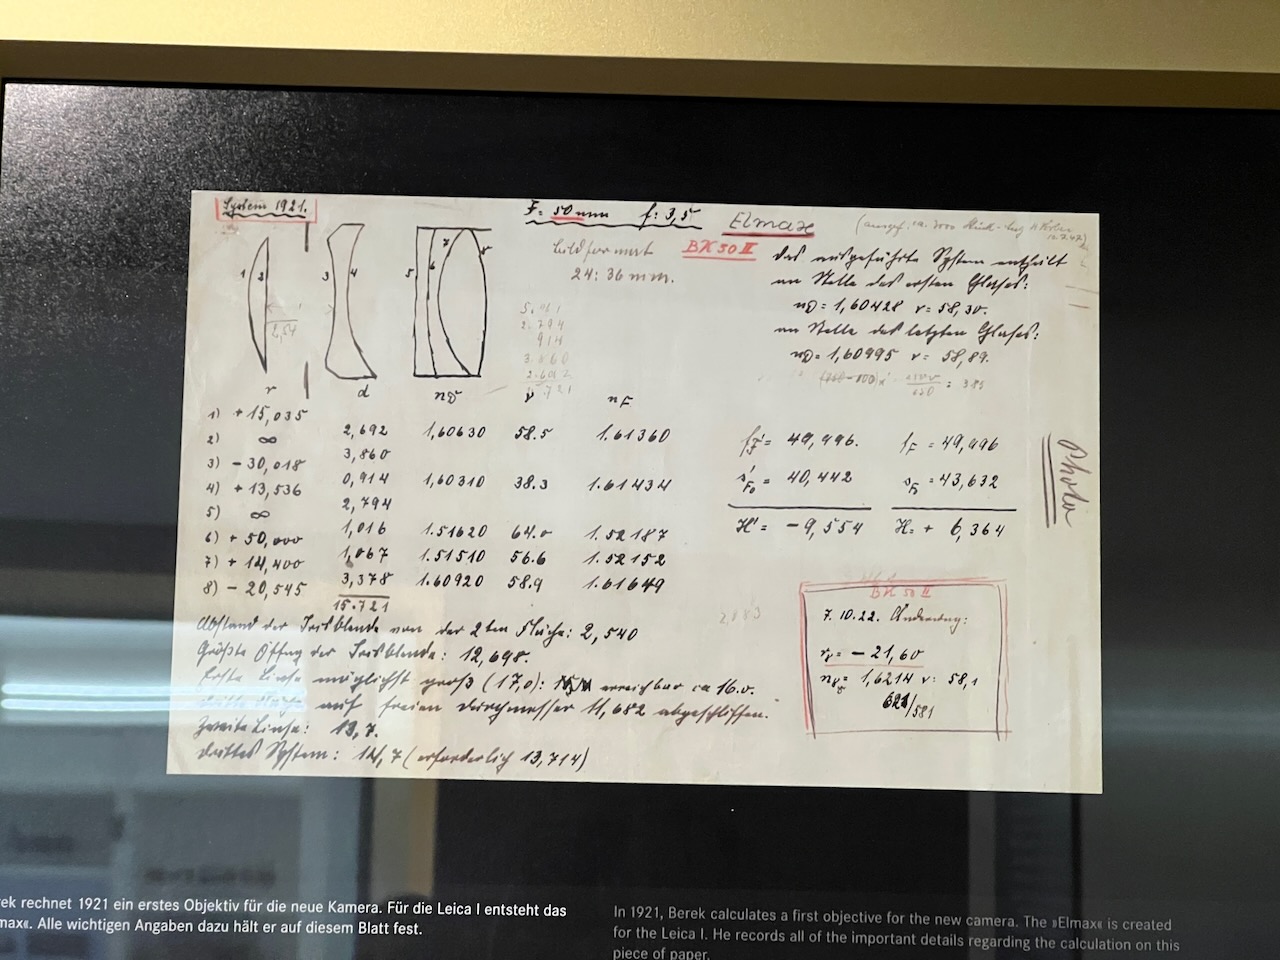 System 1921.
F = 50 mm f: 3,5
Elmax
Bildformat
24:36 mm.
BK 50 II
Das ausgeführte System enthält
an Stelle des ersten Glases:
nD = 1,60428 v = 58,30.
an Stelle des letzten Glases:
nD = 1,60995 v = 58,89.
1 2 3 4 5 6 7 8
2,54
r d nD v nF
1) + 15,035
2,692 1,60630 58.5 1.61360
2) ∞
3,860
3) - 30,018
0,914 1,60310 38.3 1.61434
4) + 13,536
2,794
5) ∞
1,016 1.51620 64.0 1.52187
6) + 50,000
1,067 1.51510 56.6 1.52152
7) + 14,400
3,378 1.60920 58.9 1.61649
8) - 20,545
15.721
f'F = 49,996. fF = 49,996
s'F0 = 40,442 sF = 43,632
H' = - 9,554 H = + 6,364
Photo
Abstand der Irisblende von der 2ten Fläche: 2,540
Größte Öffng der Irisblende: 12,698.
Erste Linse möglichst groß (17,0): erreichbar ca 16.0.
auf freien Durchmesser 11,682 abgeschliffen.
Zweite Linse: 13,7.
Drittes System: 14,7 (erforderlich 13,714)
BK 50 II
7.10.22. Änderung:
r8 = - 21,60
n = 1,6214 v: 58,1
621/581
rek rechnet 1921 ein erstes Objektiv für die neue Kamera. Für die Leica I entsteht das
max«. Alle wichtigen Angaben dazu hält er auf diesem Blatt fest.
In 1921, Berek calculates a first objective for the new camera. The »Elmax« is created
for the Leica I. He records all of the important details regarding the calculation on this
piece of paper.